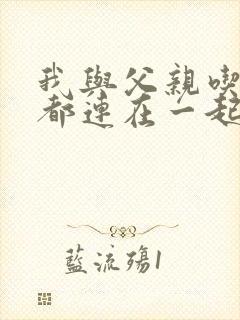 我與父親喫
都連在一起
藍流殤1